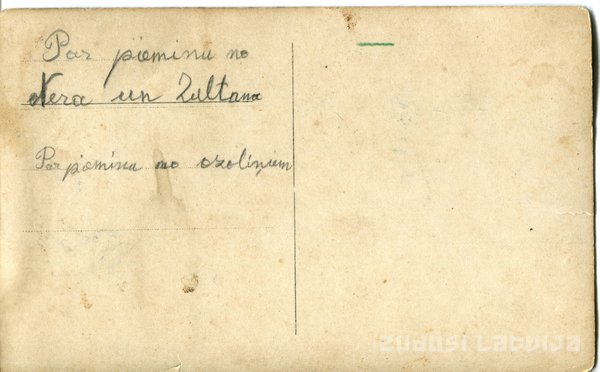 Par pieminu no
Nera un Zultana
Par piemiņu no ozoliņiem
ZUDUSI LATVIJA